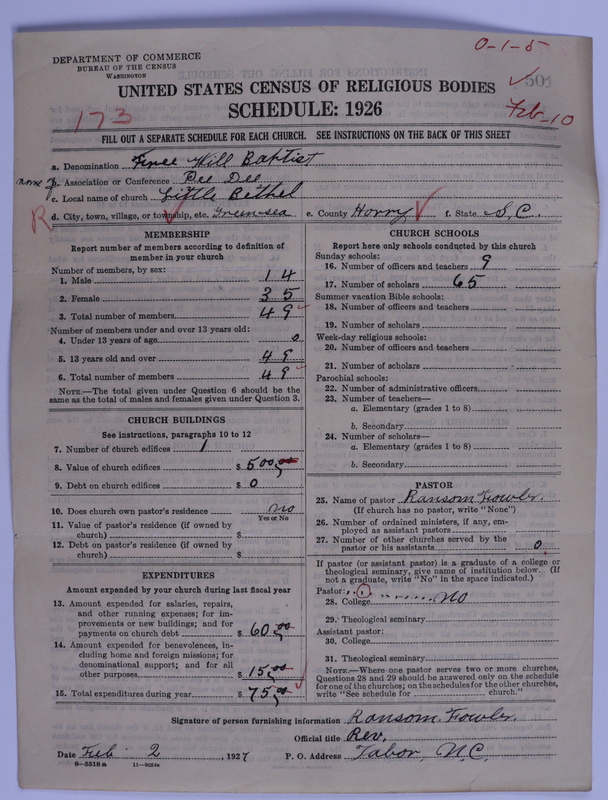 O-1-5
DEPARTMENT OF COMMERCE
BUREAU OF THE CENSUS
WASHINGTON
501
UNITED STATES CENSUS OF RELIGIOUS BODIES
SCHEDULE: 1926
173
Feb-10
FILL OUT A SEPARATE SCHEDULE FOR EACH CHURCH. SEE INSTRUCTIONS ON THE BACK OF THIS SHEET
a. Denomination Free Will Baptist
b. Association or Conference Pee Dee
c. Local name of church Little Bethel
R
d. City, town, village, or township, etc. Greensea e. County Horry f. State S, C.
MEMBERSHIP
Report number of members according to definition of
member in your church
Number of members, by sex:
1. Male 14
2. Female 35
3. Total number of members 49
Number of members under and over 13 years old:
4. Under 13 years of age 0
5. 13 years old and over 49
6. Total number of members 49
NOTE.—The total given under Question 6 should be
same as the total of males and females given under Question 3.
CHURCH BUILDINGS
See instructions, paragraphs 10 to 12
7. Number of church edifices 1
8. Value of church edifices $ 500,00
9. Debt on church edifices $ 0
10. Does church own pastor's residence no
Yes or No
11. Value of pastor's residence (if owned by
church) $
12. Debt on pastor's residence (if owned by
church) $
EXPENDITURES
Amount expended by your church during last fiscal year
13. Amount expended for salaries, repairs,
and other running expenses; for im-
provements or new buildings; and for
payments on church debt $ 60,00
14. Amount expended for benevolences, in-
cluding home and foreign missions; for
denominational support; and for all
other purposes $ 15,00
15. Total expenditures during year $ 75,00
CHURCH SCHOOLS
Report here only schools conducted by this church
Sunday schools:
16. Number of officers and teachers 9
17. Number of scholars 65
Summer vacation Bible schools:
18. Number of officers and teachers
19. Number of scholars
Week-day religious schools:
20. Number of officers and teachers
21. Number of scholars
Parochial schools:
22. Number of administrative officers
23. Number of teachers—
a. Elementary (grades 1 to 8)
b. Secondary
24. Number of scholars—
a. Elementary (grades 1 to 8)
b. Secondary
PASTOR
25. Name of pastor Ransom Fowler.
(If church has no pastor, write "None")
26. Number of ordained ministers, if any, em-
ployed as assistant pastors
27. Number of other churches served by the
pastor or his assistants 0
If pastor (or assistant pastor) is a graduate of a college or
theological seminary, give name of institution below. (If
not a graduate, write "No" in the space indicated.)
Pastor:
28. College no
29. Theological seminary
Assistant pastor:
30. College
31. Theological seminary
NOTE.—Where one pastor serves two or more churches,
Questions 28 and 29 should be answered only on the schedule
for one of the churches; on the schedules for the other churches,
write "See schedule for church."
Signature of person furnishing information Ransom Fowler.
Official title Rev.
Date Feb 2, 1927 P. O. Address Tabor, N,C.
8-5518 a 11-9054a